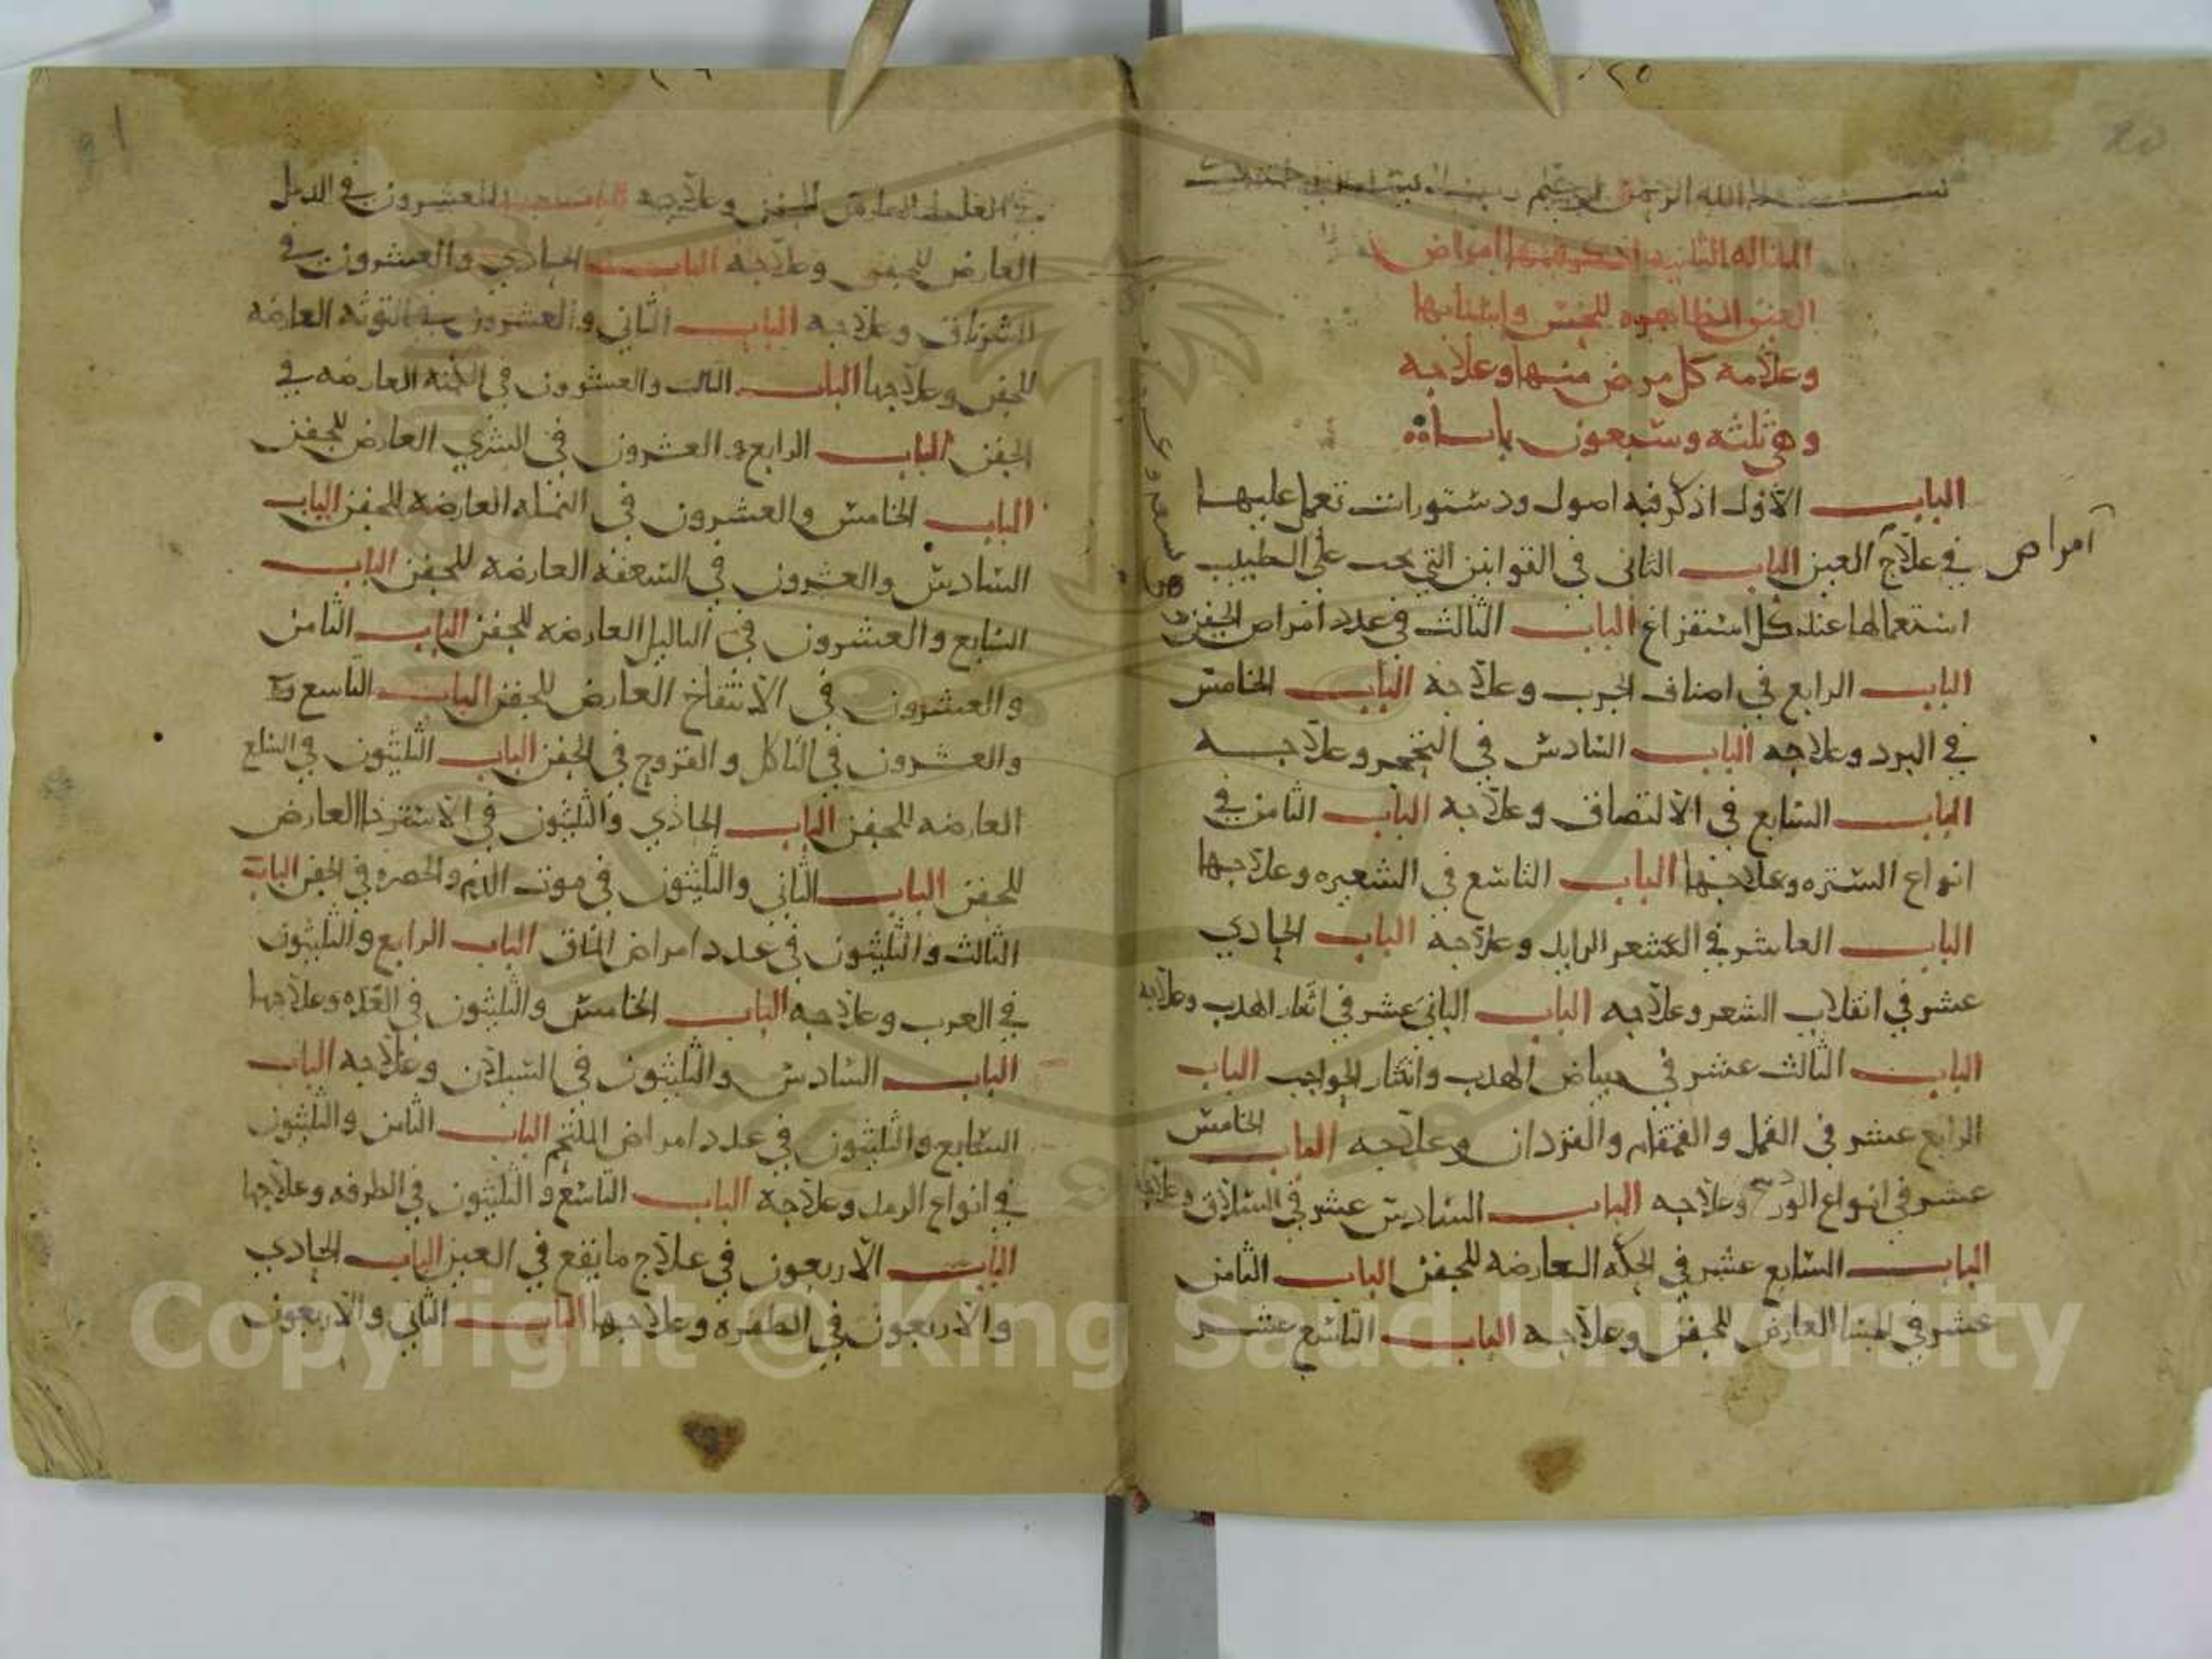 بسم الله الرحمن الرحيم
المقاله الثانيه اذكر فيها امراض
العين الظاهره للحس واسبابها
وعلامة كل مرض منها وعلاجه
وهي ثلثه وسبعون بابا
الباب الاول اذكر فيه اصول ودستورات تعمل عليها
امراض
في علاج العين الباب الثاني في القوانين التي يجب على الطبيب
استعمالها عند كل استفراغ الباب الثالث في عدد امراض الجفن
الباب الرابع في اصناف الجرب وعلاجه الباب الخامس
في البرد وعلاجه الباب السادس في التحجر وعلاجه
الباب السابع في الالتصاق وعلاجه الباب الثامن في
انواع الشتره وعلاجها الباب التاسع في الشعيره وعلاجها
الباب العاشر في الشعر الزايد وعلاجه الباب الحادي
عشر في انقلاب الشعر وعلاجه الباب الثاني عشر في انثار الهدب وعلاجه
الباب الثالث عشر في بياض الهدب وانثار الحواجب الباب
الرابع عشر في القمل والقمقام والقردان وعلاجه الباب الخامس
عشر في انواع الوردينج وعلاجه الباب السادس عشر في السلاق وعلاجه
الباب السابع عشر في الحكه العارضه للجفن الباب الثامن
عشر في الجسا العارض للجفن وعلاجه الباب التاسع عشر
في الغلظ العارض للجفن وعلاجه الباب العشرون في الدمل
العارض للجفن وعلاجه الباب الحادي والعشرون في
الشرناق وعلاجه الباب الثاني والعشرون في التوثه العارضه
للجفن وعلاجها الباب الثالث والعشرون في الكمنه العارضه في
الجفن الباب الرابع والعشرون في الشري العارض للجفن
الباب الخامس والعشرون في النمله العارضه للجفن الباب
السادس والعشرون في السعفه العارضه للجفن الباب
السابع والعشرون في الثاليل العارضه للجفن الباب الثامن
والعشرون في الانتفاخ العارض للجفن الباب التاسع و
والعشرون في التاكل والقروح في الجفن الباب الثلثون في السلع
العارضه للجفن الباب الحادي والثلثون في الاسترخا العارض
للجفن الباب الثاني والثلثون في موت الدم والخضره في الجفن الباب
الثالث والثلثون في عدد امراض الماق الباب الرابع والثلثون
في الغرب وعلاجه الباب الخامس والثلثون في الغده وعلاجها
الباب السادس والثلثون في السيلان وعلاجه الباب
السابع والثلثون في عدد امراض الملتحم الباب الثامن والثلثون
في انواع الرمد وعلاجه الباب التاسع والثلثون في الطرفه وعلاجها
الباب الاربعون في علاج ما يقع في العين الباب الحادي
والاربعون في الظفره وعلاجها الباب الثاني والاربعون
Copyright © King Saud University